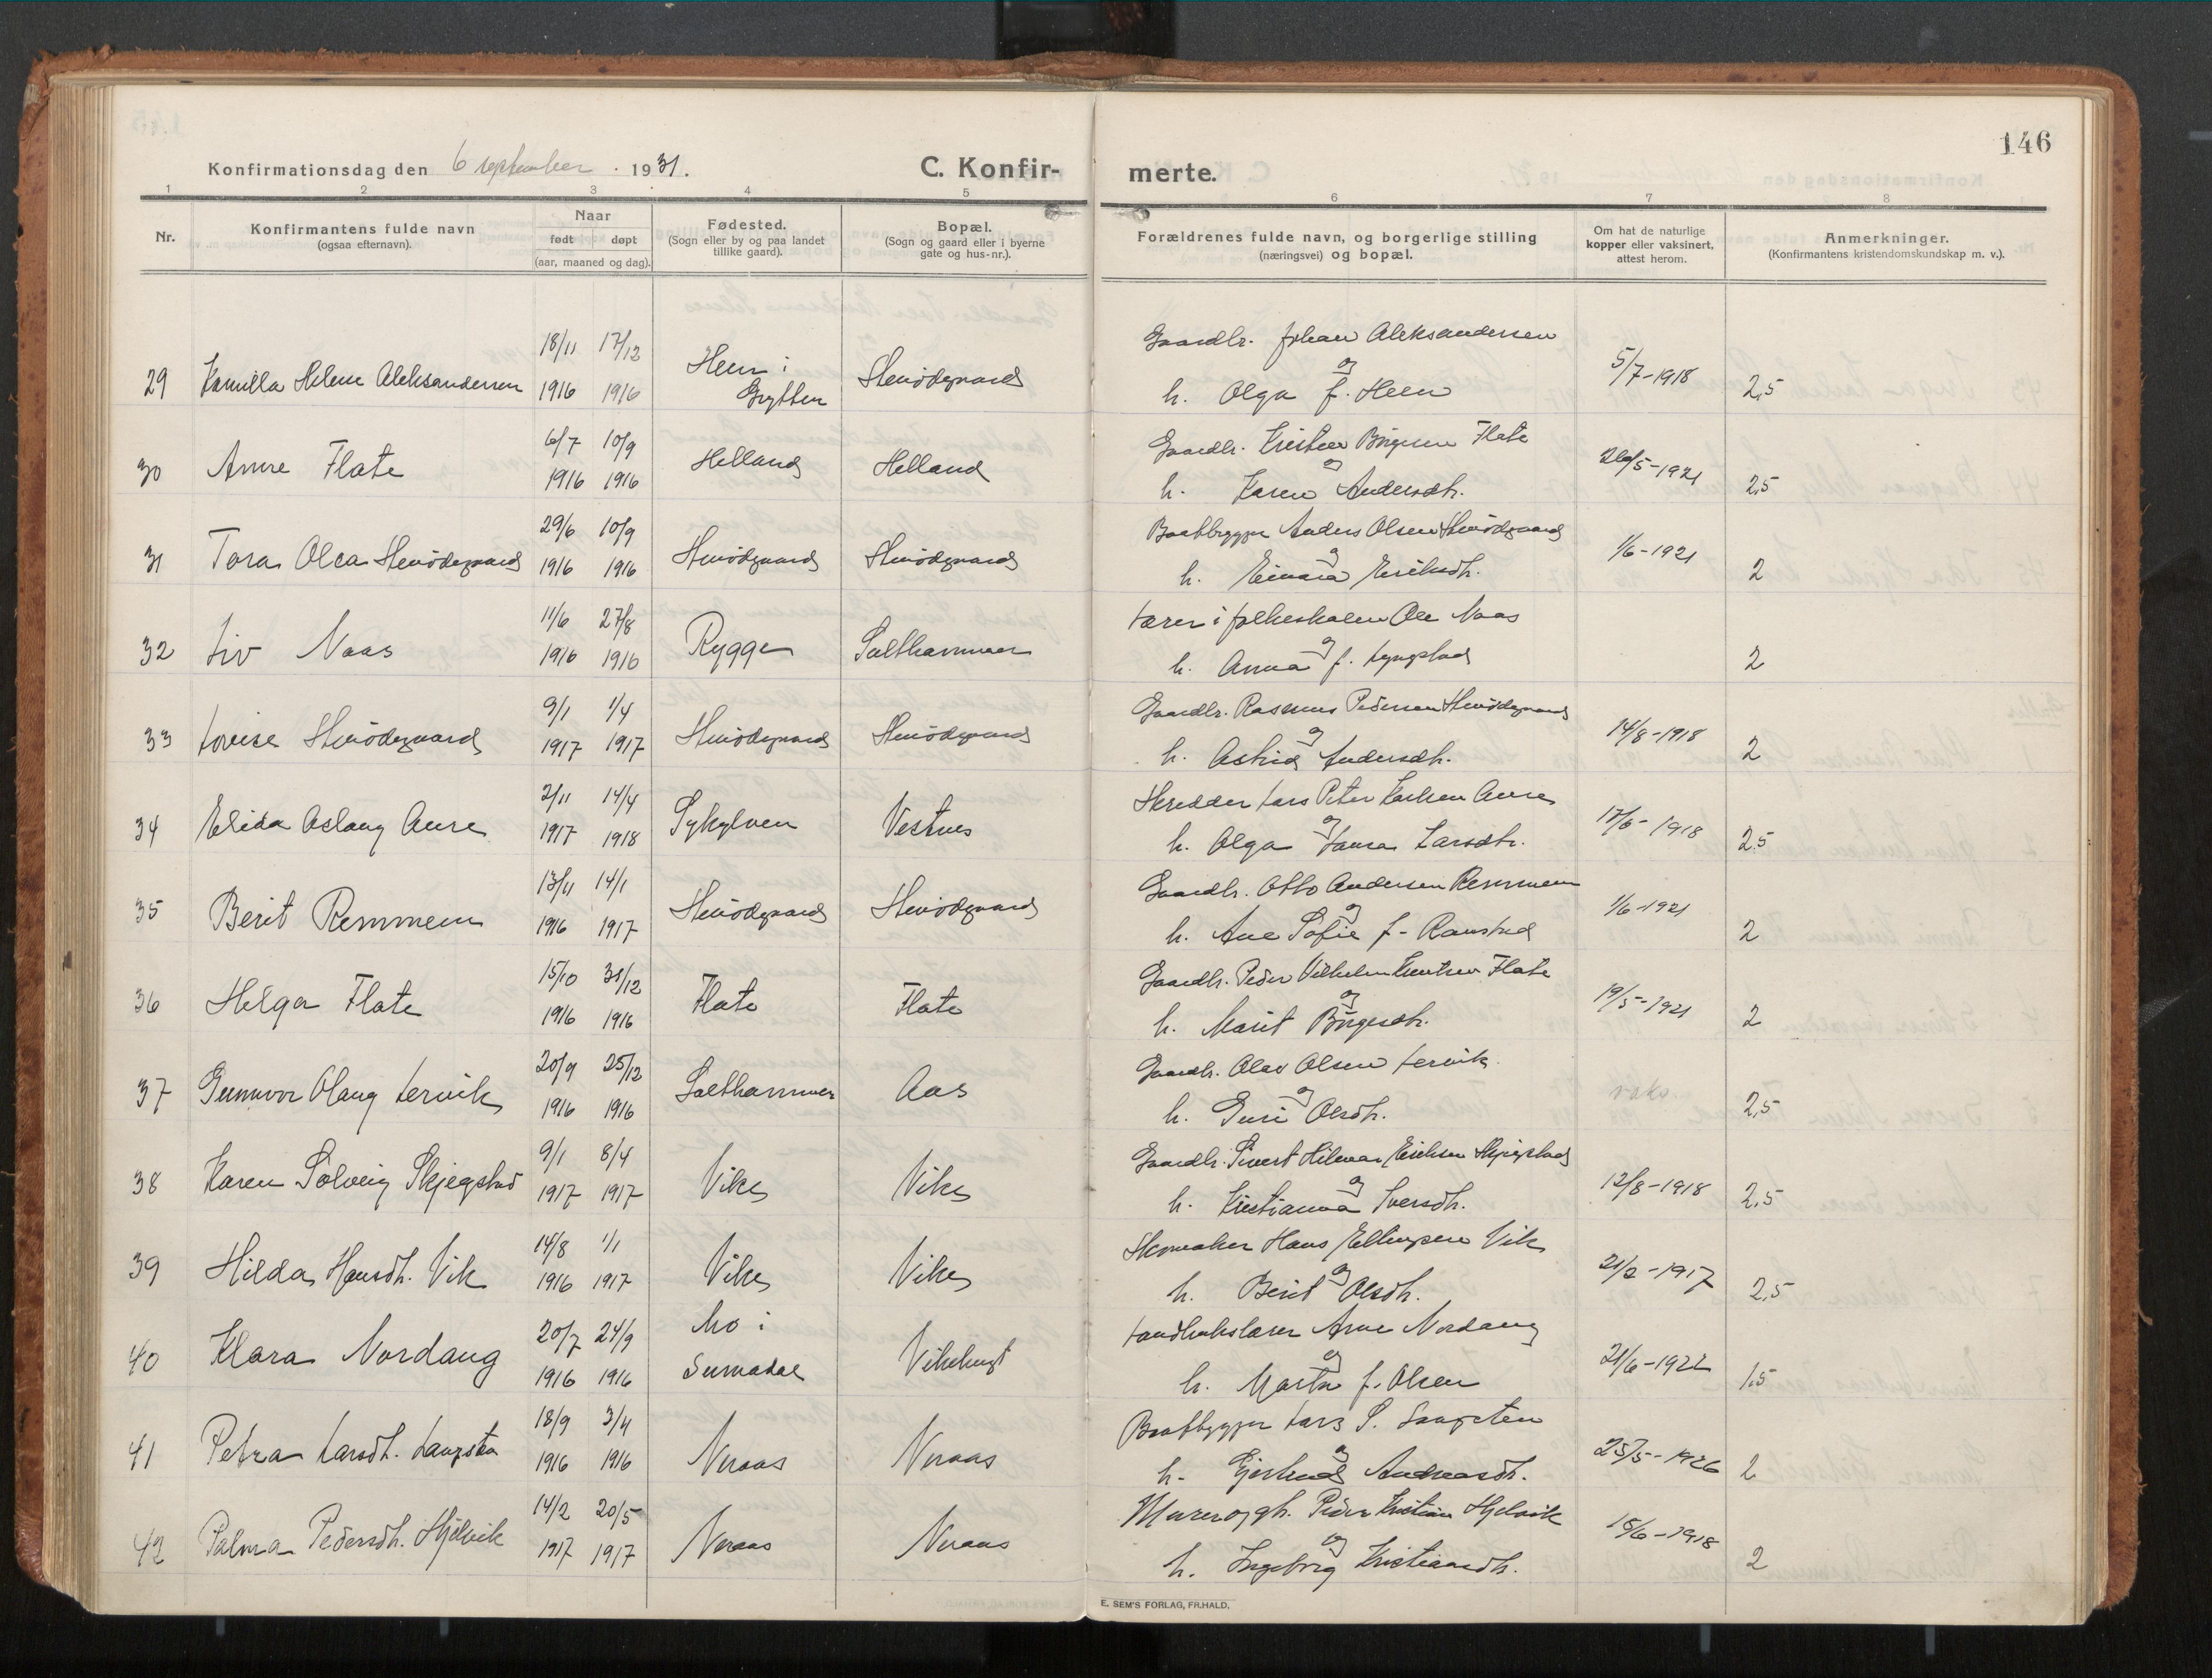 146
Konfirmationsdag den 6 september 1931.
C. Konfirmerte.
1 2 3 4 5 6 7 8
Nr.
Konfirmantens fulde navn
(ogsaa efternavn).
Naar
født døpt
(aar, maaned og dag).
Fødested.
(Sogn eller by og paa landet
tillike gaard).
Bopæl.
(Sogn og gaard eller i byerne
gate og hus-nr.).
Forældrenes fulde navn, og borgerlige stilling
(næringsvei) og bopæl.
Om hat de naturlige
kopper eller vaksinert,
attest herom.
Anmerkninger.
(Konfirmantens kristendomskundskap m. v.).
18/11 17/12 Gaardbr. Johan Aleksandersen
29 Kamilla Helene Aleksandersen 1916 1916 Heen i Grytten Stenødegaard og 5/7-1918 2,5
h. Olga f. Heen
6/7 10/9 Gaardbr. Kristen Børgesen Flate
30 Anne Flate 1916 1916 Helland Helland og 20/5-1921 2,5
h. Karen Andersdtr.
29/6 10/9 Baatbygger Anders Olsen Stenødegaard
31 Tora Olea Stenødegaard 1916 1916 Stenødegaard Stenødegaard og 1/6-1921 2
h. Einara Eriksdtr.
11/6 27/8 Lærer i folkeskolen Ole Naas
32 Liv Naas 1916 1916 Rygge Salthammer og 2
h. Anna f. Lyngstad
9/1 1/4 Gaardbr. Rasmus Pedersen Stenødegaard
33 Lovise Stenødegaard 1917 1917 Stenødegaard Stenødegaard og 14/8-1918 2
h. Astrid Andersdtr.
2/11 14/4 Skredder Lars Peter Karlsen Aure
34 Elida Aslaug Aure 1917 1918 Sykylven Vestnes og 17/6-1918 2.5
h. Olga Laura Larsdtr.
13/11 14/1 Gaardbr. Otto Andersen Remmem
35 Berit Remmem 1916 1917 Stenødegaard Stenødegaard og 1/6-1921 2
h. Ane Sofie f. Ranstad
15/10 31/12 Gaardbr. Peder Vilhelm Knutsen Flate
36 Helga Flate 1916 1916 Flate Flate og 19/5-1921 2
h. Marit Børgesdtr.
20/9 25/12 Gaardbr. Olav Olsen Lervik
37 Gunnvor Olaug Lervik 1916 1916 Salthammer Aas og vaks. 2,5
h. Guri Olsdtr.
9/1 8/4 Gaardbr. Sivert Hilmar Eriksen Skjegstad
38 Karen Solveig Skjegstad 1917 1917 Vike Vike og 12/8-1918 2,5
h. Kristianna Iversdtr.
14/8 1/1 Skomaker Hans Ellingsen Vik
39 Hilda Hansdtr. Vik 1916 1917 Vike Vike og 21/2-1917 2,5
h. Berit Olsdtr.
20/7 24/9 Mo i Landbrukslærer Arne Nordang
40 Klara Nordang 1916 1916 Surnadal Vikebugt og 21/6-1922 1.5
h. Marta f. Olsen
18/9 3/4 Baatbygger Lars S. Langsten
41 Petra Larsdtr. Langsten 1916 1916 Neraas Neraas og 25/5-1926 2
h. Gjertrud Andreasdtr.
14/2 20/5 Murer og gb. Peder Kristian Hjelvik
42 Palma Pedersdtr. Hjelvik 1917 1917 Neraas Neraas og 15/6-1918 2
h. Ingeborg Kristiansdtr.
E. SEM'S FORLAG, FR.HALD.